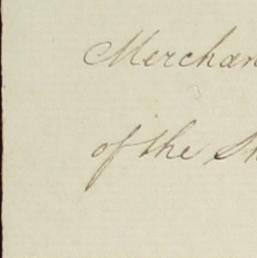 Merchan
of the Sh